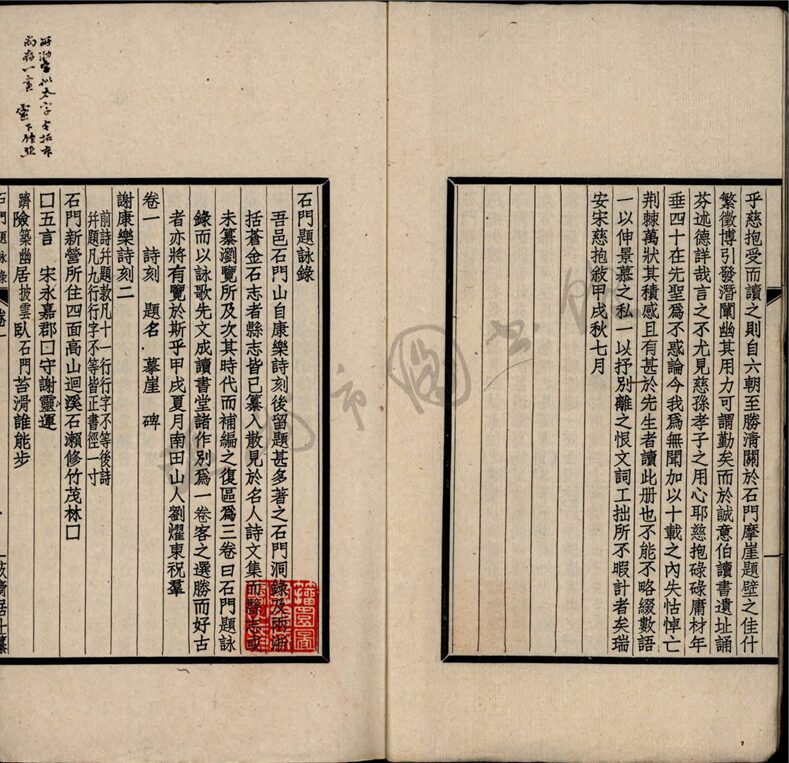 乎慈抱受而讀之則自六朝至勝淸關於石門摩崖題壁之佳什
繁徵博引發潛闡幽其用力可謂勤矣而於誠意伯讀書遺址誦
芬述德詳哉言之不尤見慈孫孝子之用心耶慈抱碌碌庸材年
垂四十在先聖爲不惑論今我爲無聞加以十載之內失怙悼亡
荆棘萬狀其積感且有甚於先生者讀此册也不能不略綴數語
一以伸景慕之私一以抒別離之恨文詞工拙所不暇計者矣瑞
安宋慈抱敘甲戌秋七月
石門題詠錄
吾邑石門山自康樂詩刻後留題甚多著之石門洞錄及兩浙
括蒼金石志者縣志皆已纂入散見於名人詩文集而縣志或
未纂瀏覽所及次其時代而補編之復區爲三卷曰石門題詠
錄而以詠歌先文成讀書堂諸作別爲一卷客之選勝而好古
者亦將有覽於斯乎甲戌夏月南田山人劉燿東祝羣
卷一 詩刻 題名 摹崖 碑
謝康樂詩刻二
前詩幷題款凡十一行行字不等後詩
幷題凡九行行字不等皆正書徑一寸
石門新營所住四面高山迴溪石瀨修竹茂林口
口五言 宋永嘉郡口守謝靈運
躋險築幽居披雲臥石門苔滑誰能步
石門題詠錄 卷一
居士纂